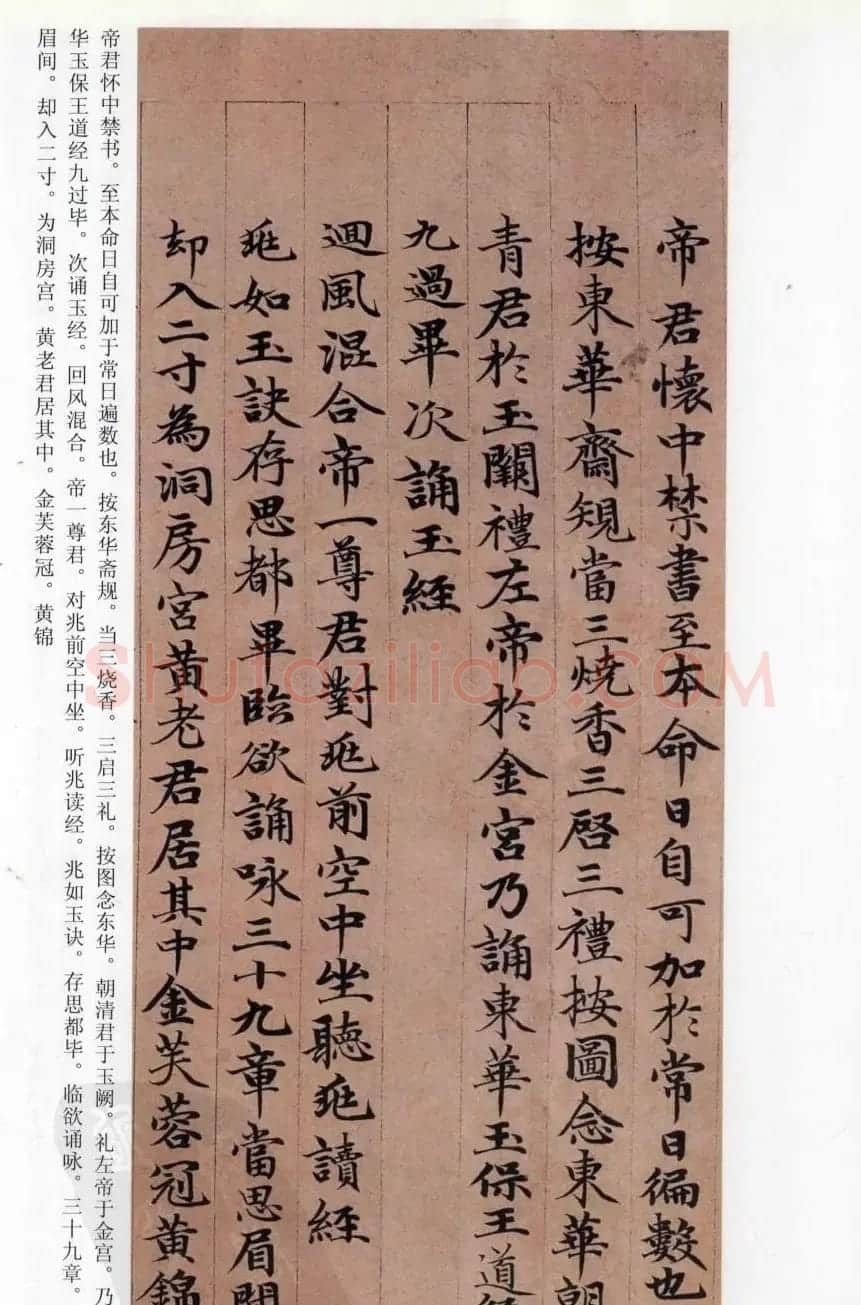 帝君懷中禁書至本命日自可加於常日徧數也
按東華齋規當三燒香三啓三禮按圖念東華朝
青君於玉闕禮左帝於金宮乃誦東華玉保王道經
九過畢次誦玉經
迴風混合帝一尊君對兆前空中坐聽兆讀經
兆如玉訣存思都畢臨欲誦咏三十九章當思眉間
却入二寸為洞房宮黃老君居其中金芙蓉冠黃錦
帝君怀中禁书。至本命日自可加于常日遍数也。按东华斋规。当三烧香。三启三礼。按图念东华。朝清君于玉阙。礼左帝于金宫。乃
华玉保王道经九过毕。次诵玉经。回风混合。帝一尊君。对兆前空中坐。听兆读经。兆如玉诀。存思都毕。临欲诵咏。三十九章。
眉间。却入二寸。为洞房宫。黄老君居其中。金芙蓉冠。黄锦
Shufaziliao.COM